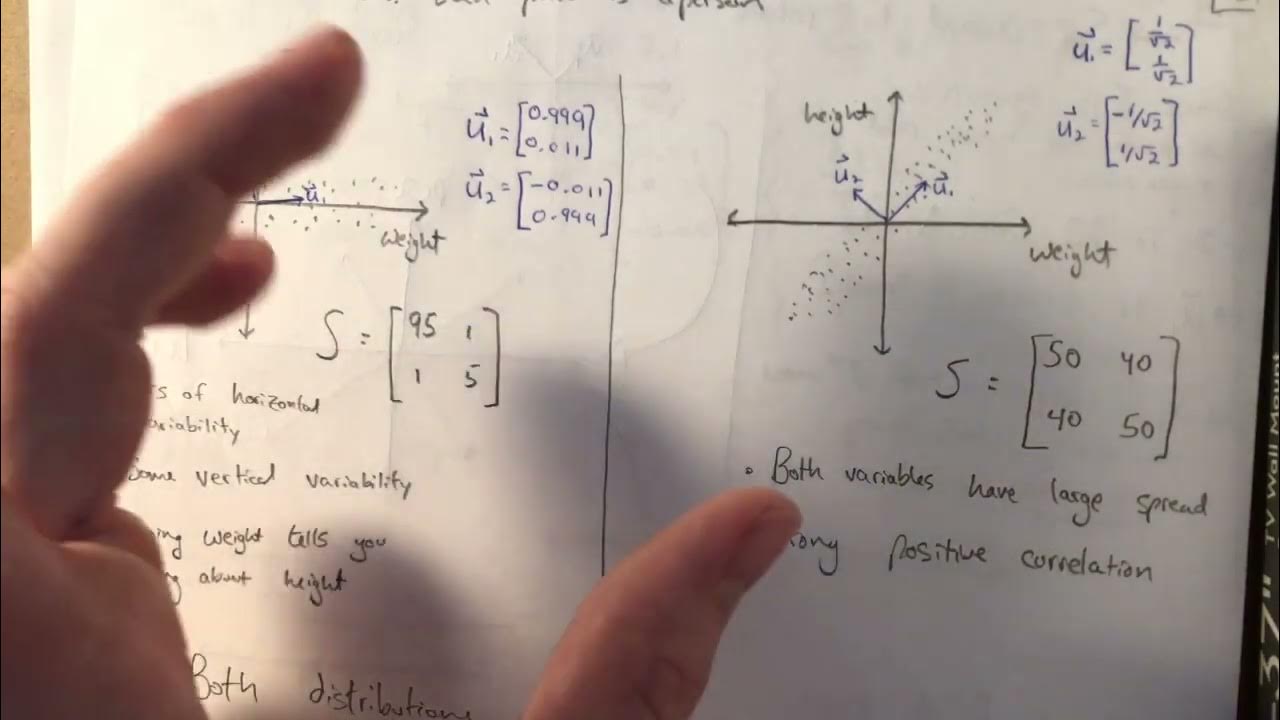 is a person
weight
u⃗₁
u⃗₁ = [0.999
0.011]
u⃗₂ = [-0.011
0.999]
S = [95 1
1 5]
of horizontal
variability
some vertical variability
weight tells you
about height
Both distributions
u⃗₁ = [1/√2
1/√2]
u⃗₂ = [-1/√2
1/√2]
height
u⃗₂
u⃗₁
weight
S = [50 40
40 50]
• Both variables have large spread
positive correlation
37" TV Wall Mount